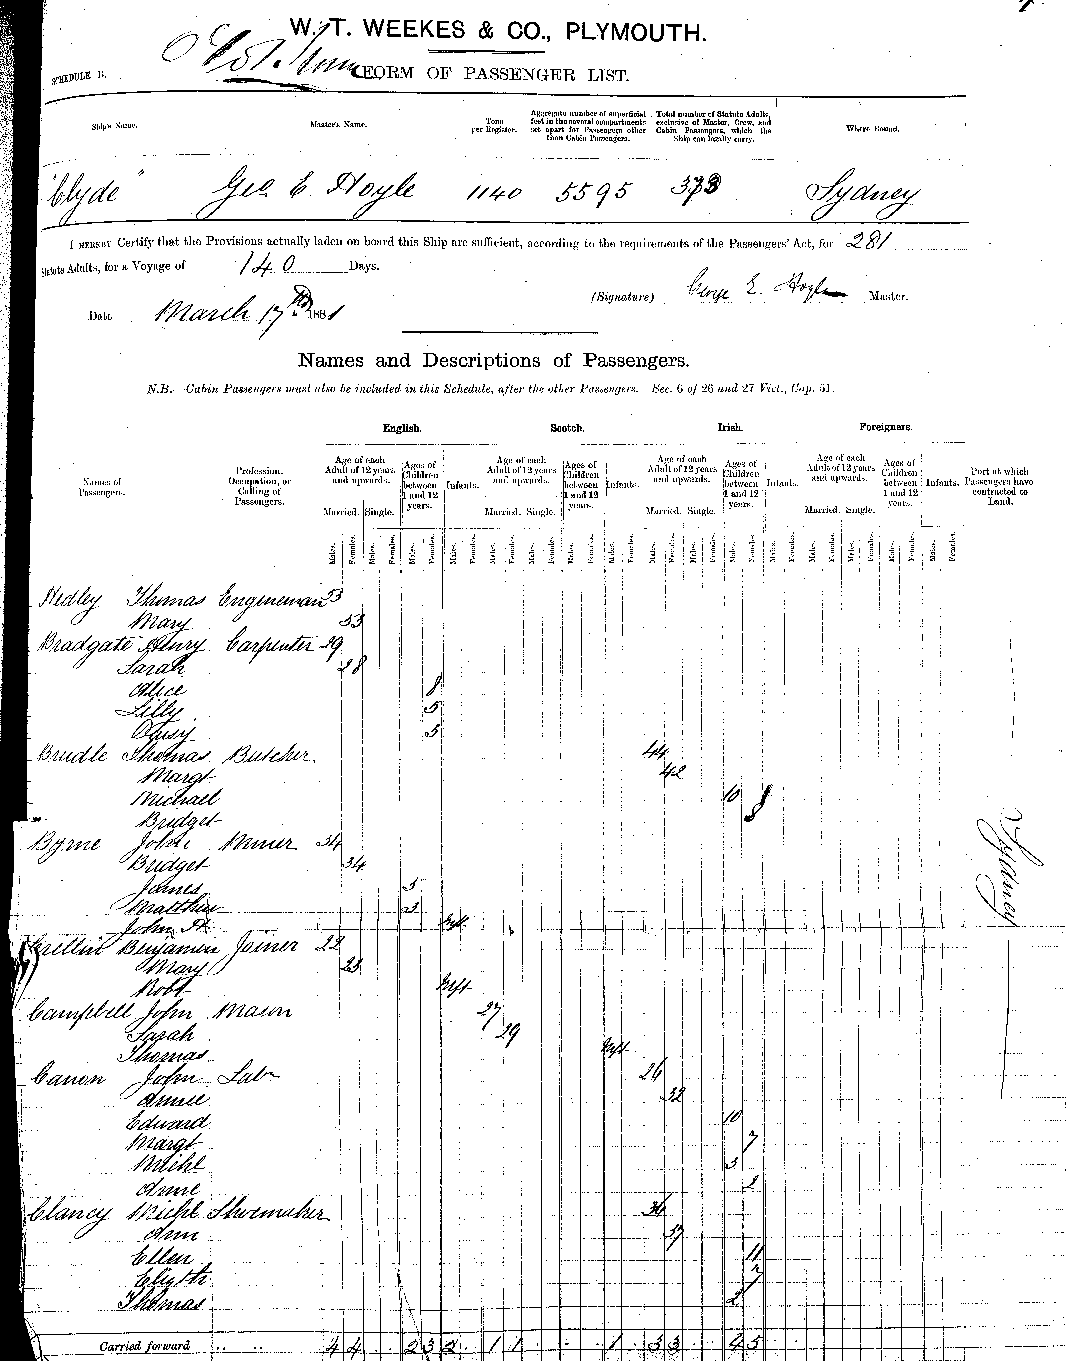 W. T. WEEKES & CO., PLYMOUTH.
SCHEDULE B. FORM OF PASSENGER LIST.
Ship's Name. Master's Name. Tons per Register. Aggregate number of superficial feet in the several compartments set apart for Passengers other than Cabin Passengers. Total number of Statute Adults, exclusive of Master, Crew, and Cabin Passengers, which the Ship can legally carry. Where Bound.
"Clyde" Geo E. Hoyle 1140 5595 373 Sydney
I HEREBY Certify that the Provisions actually laden on board this Ship are sufficient, according to the requirements of the Passengers' Act, for 281
Statute Adults, for a Voyage of 140 Days.
(Signature) George E. Hoyle Master.
Date March 17th 1881
Names and Descriptions of Passengers.
N.B. Cabin Passengers must also be included in this Schedule, after the other Passengers. Sec. 6 of 26 and 27 Vict., Cap. 51.
English. Scotch. Irish. Foreigners.
Names of Passengers. Profession, Occupation, or Calling of Passengers. Age of each Adult of 12 years and upwards. Ages of Children between 1 and 12 years. Infants. Age of each Adult of 12 years and upwards. Ages of Children between 1 and 12 years. Infants. Age of each Adult of 12 years and upwards. Ages of Children between 1 and 12 years. Infants. Age of each Adult of 12 years and upwards. Ages of Children between 1 and 12 years. Infants. Port at which Passengers have contracted to Land.
Married. Single. Married. Single. Married. Single. Married. Single.
Males. Females. Males. Females. Males. Females. Males. Females. Males. Females. Males. Females. Males. Females. Males. Females. Males. Females. Males. Females. Males. Females. Males. Females. Males. Females. Males. Females. Males. Females. Males. Females.
Hedley Thomas Engineman 53
Mary 53
Bradgate Henry Carpenter 29
Sarah 28
Alice 8
Lilly 5
Daisy 3
Brudle Thomas Butcher 44
Margt 42
Michael 10
Bridget 8
Byrne John Miner 34
Bridget 34
James 5
Matthew 3
John Inft
Benjamin Joiner 22
Mary 23
Robt Inft
Campbell John Mason 27
Sarah 29
Thomas Inft
Canon John Labr 26
Annie 32
Edward 10
Margt 7
Michl 3
Anne 2
Clancy Michl Shoemaker 36
Ann 37
Ellen 11
Elizth 7
Thomas 2
Sydney
Carried forward 4 4 2 3 2 1 1 1 3 3 4 5